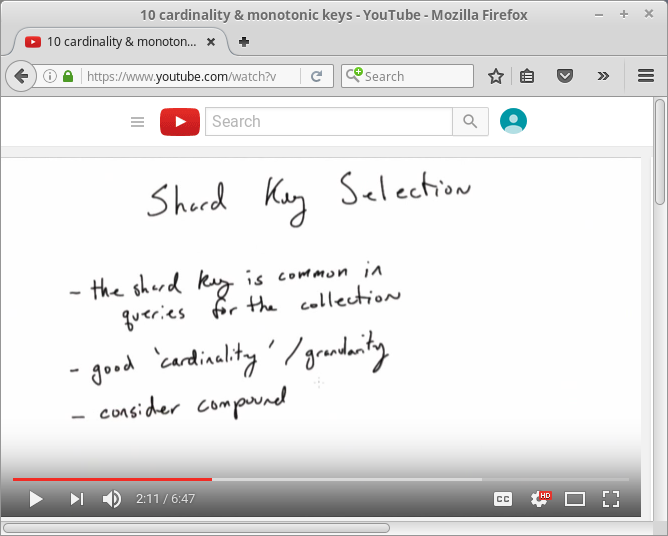 10 cardinality & monotonic keys - YouTube - Mozilla Firefox
10 cardinality & monoton...
https://www.youtube.com/watch?v
Search
Search
Shard Key Selection
- the shard key is common in
queries for the collection
- good 'cardinality' / granularity
- consider compound
2:11 / 6:47
CC
HD